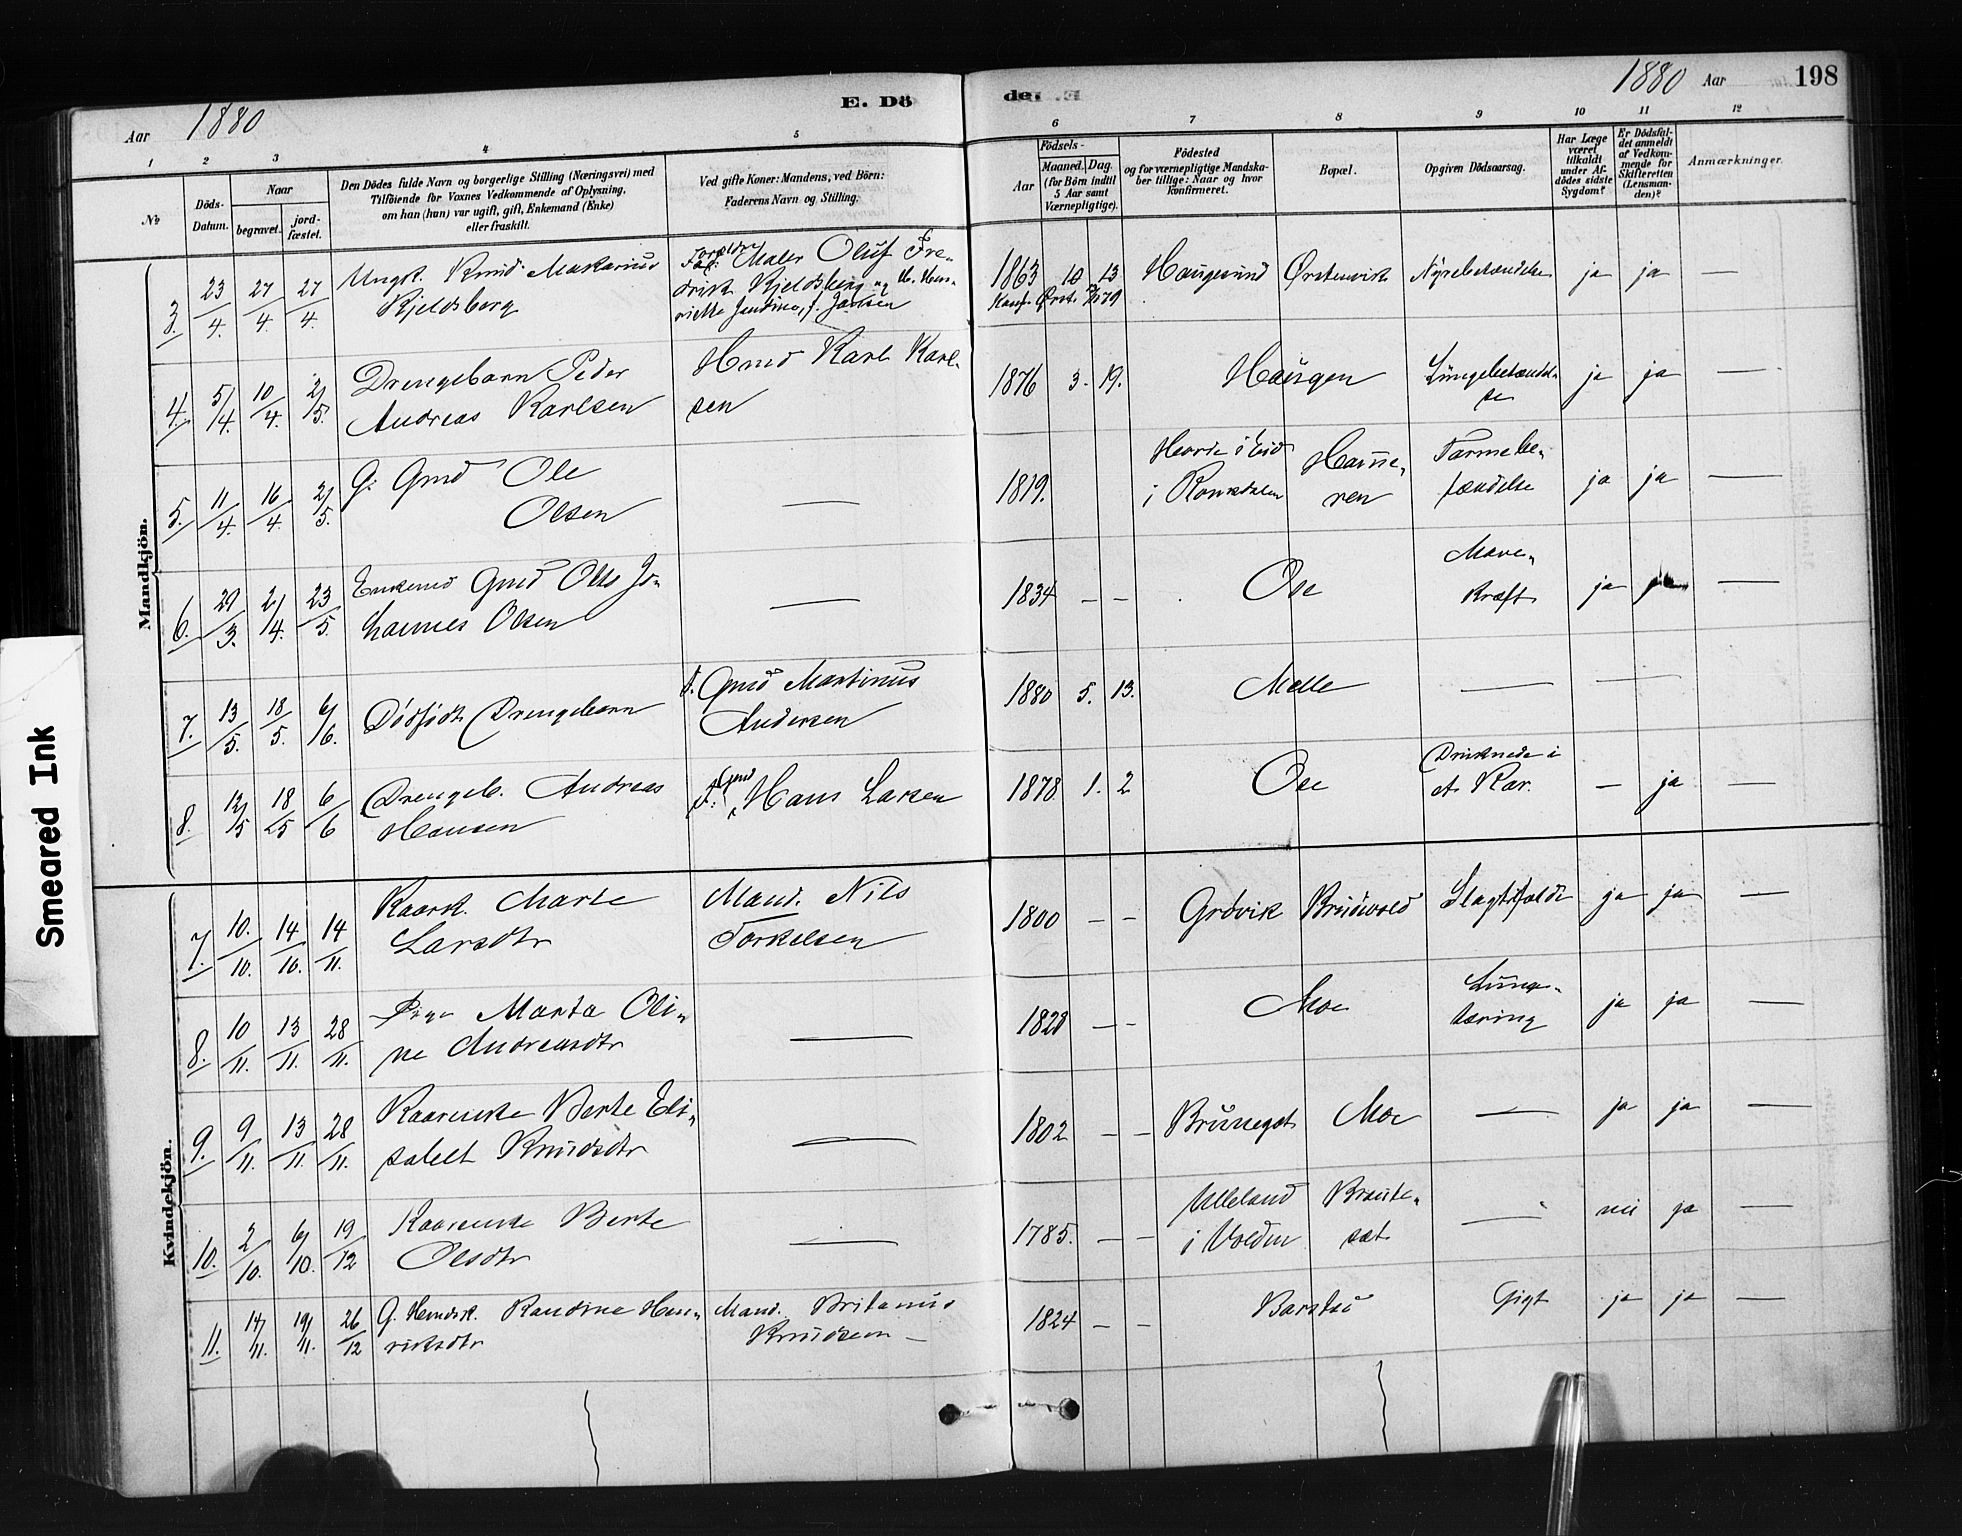 Aar 1880 E. Dö de: 1880 Aar 198
1 2 3 4 5 6 7 8 9 10 11 12
No
Döds-
Datum.
Naar
begravet.
jord-
fæstet.
Den Dödes fulde Navn og borgerlige Stilling (Næringsvei) med
Tilföiende for Voxnes Vedkommende af Oplysning,
om han (hun) var ugift, gift, Enkemand (Enke)
eller fraskilt.
Ved gifte Koner: Mandens, ved Börn:
Faderens Navn og Stilling.
Födsels-
Aar
Maaned. Dag.
(for Börn indtil
5 Aar samt
Værnepligtige).
Födested
og for værnepligtige Mandska-
ber tillige: Naar og hvor
konfirmeret.
Bopæl.
Opgiven Dödsaarsag.
Har Læge
været
tilkaldt
under Af-
dödes sidste
Sygdom?
Er Dödsfal-
det anmeldt
af Vedkom-
mende for
Skifteretten
(Lensman-
den)?
Anmærkninger.
Mandkjön.
3. 23/4 27/4 27/4 Ungk. Knud Makarius
Kjeldsberg
Forældre Maler Oluf Fre-
drik Kjeldsberg og
Jansen
1863 10 13 Haugesund Ørstenvik Nyrebetændelse ja ja —
4. 5/4 10/4 2/5 Drengebarn Peder
Andreas Karlsen
Hmd Karl Karl-
sen
1876 3. 19. Haugen Lungebetændel-
se
ja ja —
5. 11/4 16/4 2/5 G. Gmd Ole
Olsen
—
1819. i Romsdalen
Tarmbe-
tændelse
ja ja —
6. 29/3. 2/4. 23/5. Enkemd Gmd Otto Jo-
hannes Olsen
—
1834 — — Ose Mave-
kræft
ja ja —
7. 13/5. 18/5. 6/6. Dødfødt Drengebarn
f. Gmd Martinus
Andersen
1880 5. 13. Melle — —
8. 12/5 18/5 6/6 Drengeb. Andreas
Hansen
F. Gmd Hans Larsen
1878 1. 2 Ose Druknede i
et Kar.
— ja —
Kvindekjön.
7. 10./10. 14/10. 14/11. Kaark. Marte
Larsdtr
Mand. Nils
Torkelsen
1800 — — Grøvik Brudevold Slagtilfælde ja ja —
8. 10/11. 13/11. 28/11. Pige Marta Oli-
ne Andreasdtr
—
1828 — — Moe Lunge-
tæring
ja ja —
9. 9/11. 13/11. 28/11. Kaarenke Berte Eli-
sabet Knudsdtr
—
1802 — — Brunegot Moe — ja ja —
10. 2/10. 6/10. 19/12 Kaarenke Berte
Olsdtr
—
1785. — — Ulleland
i Volden
Braute-
set
— nei ja —
11. 14/11. 19/11. 26/12 G. Randine Hen-
riksdtr
Mand. Britanus
Knudsen —
1824 — — Barstad Gigt ja ja —
Smeared Ink